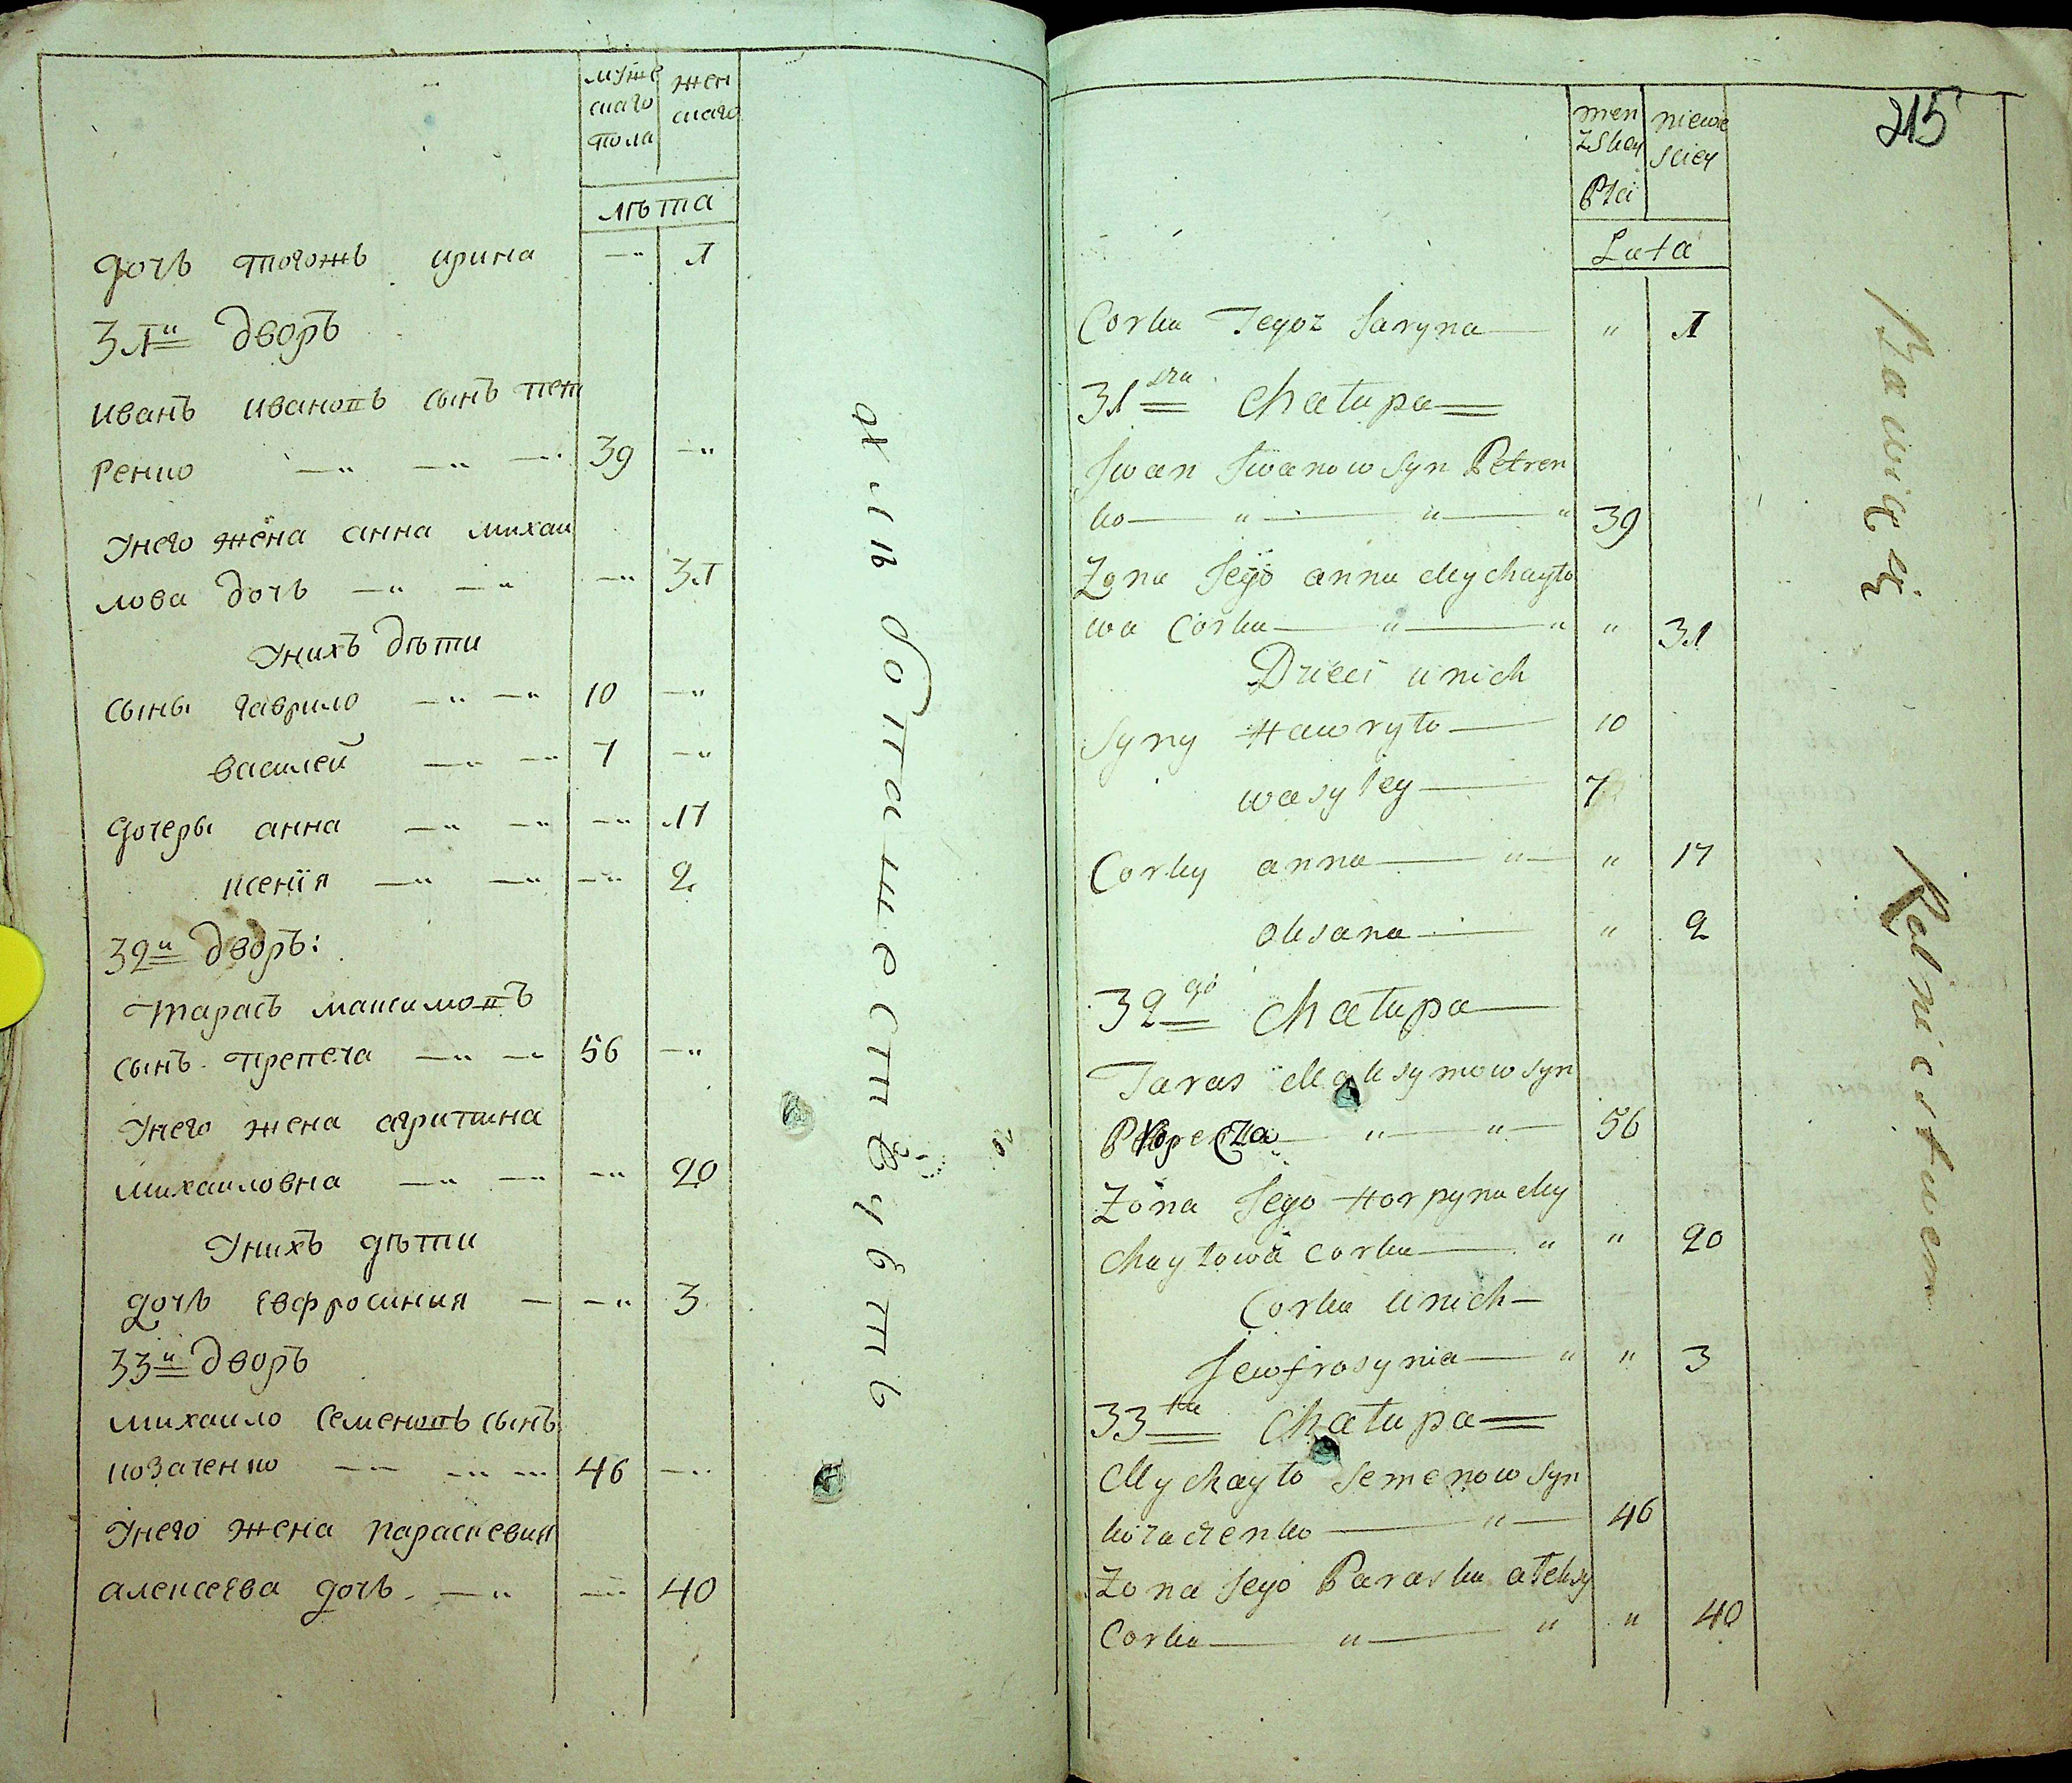 муже
скаго
пола
жен
скаго
лѣта
дочь тогожъ ирина —„ 1
31й дворъ
иванъ ивановъ сынъ пет
ренко —„ —„ —„ 39 —„
унего жена анна михаи
лова дочь —„ —„ —„ 31
унихъ дѣти
сыны гаврило —„ —„ 10 —„
василей —„ —„ 7 —„
дочеры анна —„ —„ —„ 17
ксенїя —„ —„ —„ 2
32й дворъ:
тарасъ максимовъ
сынъ препеча —„ —„ 56 —„
унего жена агрипина
михаиловна —„ —„ —„ 20
унихъ дѣти
дочь евфросиния — —„ 3
33й дворъ
михаило семеновъ сынъ
козаченко —„ —„ —„ 46 —„
унего жена параскевия
алексеева дочь —„ —„ 40
215
men
zskey
Płci
niewe
sciey
Lata
Corka Tegoż Jaryna — „ 1
31sza Chałupa
Jwan Jwanow syn Petren
ko — „ — „ — „ 39
Zona Jego anna Mychayło
wa Corka — „ — „ „ 31
Dzieci u nich
Syny Hawryło — 10
wasyley — 7
Corky anna — „ — „ 17
oksana — „ 2
32go Chałupa —
Taras Maksymow syn
Prepecza — „ — „ — 56
Zona Jego Horpyna My
chayłowa corka — „ „ 20
Corka u nich —
Jewfrosynia — „ „ 3
33cia Chałupa
Mychayło Semenow syn
kozaczenko — „ — 46
Zona Jego Paraska ałeksy
Corka — „ — „ „ 40
Bawić się Rolnictwem